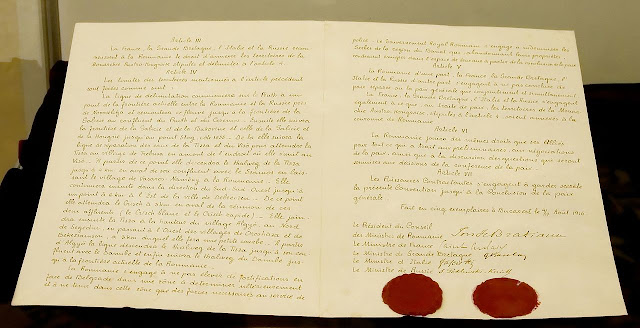 Article III
La France, la Grande Bretagne, l'Italie et la Russie reconnaissent à la Roumanie le droit d'annexer les territoires de la
Monarchie Austro-Hongroise stipulés et délimités à l'article 4.
Article IV
Les limites des territoires mentionnés à l'article précédent
sont fixées comme suit:
La ligne de délimitation commencera sur le Pruth à un
point de la frontière actuelle entre la Roumanie et la Russie près
de Novoselitza et remontera ce fleuve jusqu'à la frontière de la
Galicie au confluent du Pruth et du Ceremos. Ensuite elle suivra
la frontière de la Galicie et de la Bucovine et celle de la Galicie et
de la Hongrie jusqu'au point Stog,
ligne de séparation des eaux de la Tisza et du Viso pour atteindre la
Tisza au village de Trebusa en amont de l'endroit où elle s'unit au
Viso. A partir de ce point elle descendra le thalweg de la Tisza
jusqu'à 4 km. en aval de son confluent avec le Szamos en laissant le village de Vasaros-Namény à la Roumanie. Elle
continuera ensuite dans la direction du Sud-Sud-Ouest jusqu'à
un point à 6 km. à l'Est de la ville de Debreczen. De ce point
elle atteindra le Crisch à 3 km. en aval de la réunion de ses
deux affluents (le Crisch blanc et le Crisch rapide). Elle joindra ensuite la Tisza à la hauteur du village Algyo au Nord
de Szegedin, en passant à l'Ouest des villages de Oroshaza et de
Bekessamson, à 3 km. duquel elle fera une petite courbe. A partir
de Algyo la ligne descendra le thalweg de la Tisza jusqu'à son confluent avec le Danube et enfin suivra le thalweg du Danube jusqu'à la frontière actuelle de la Roumanie.
La Roumanie s'engage à ne pas élever de fortifications en
face de Belgrade dans une zône à déterminer ultérieurement
et à ne tenir dans cette zône que des forces nécessaires au service de
police. Le Gouvernement Royal Roumain s'engage à indemniser les
Serbes de la région du Banat qui, abandonnant leurs propriétés,
voudraient émigrer dans l'espace de deux ans à partir de la conclusion de la paix.
Article V
La Roumanie d'une part, la France, la Grande Bretagne, l'
Italie et la Russie d'autre part, s'engagent à ne pas conclure de
paix séparée ou la paix générale que conjointement et simultanément.
La France, la Grande Bretagne, l'Italie et la Russie s'engagent
également à ce que, au traité de paix, les territoires de la Monarchie Austro-Hongroise, stipulés à l'article 4, soient annexés à la
couronne de Roumanie.
Article VI
La Roumanie jouira des mêmes droits que ses Alliés
pour tout ce qui a trait aux préliminaires, aux négociations
de la paix ainsi qu'à la discussion des questions qui seront
soumises aux décisions de la conférence de la paix.
Article VII
Les Puissances Contractantes s'engagent à garder secrète
la présente Convention jusqu'à la conclusion de la paix
générale.
Fait en cinq exemplaires à Bucarest le 4/17 Août 1916
Le Président du Conseil
des Ministres de Roumanie
Le Ministre de France
Le Ministre de Grande Bretagne
Le Ministre d'Italie
Le Ministre de Russie